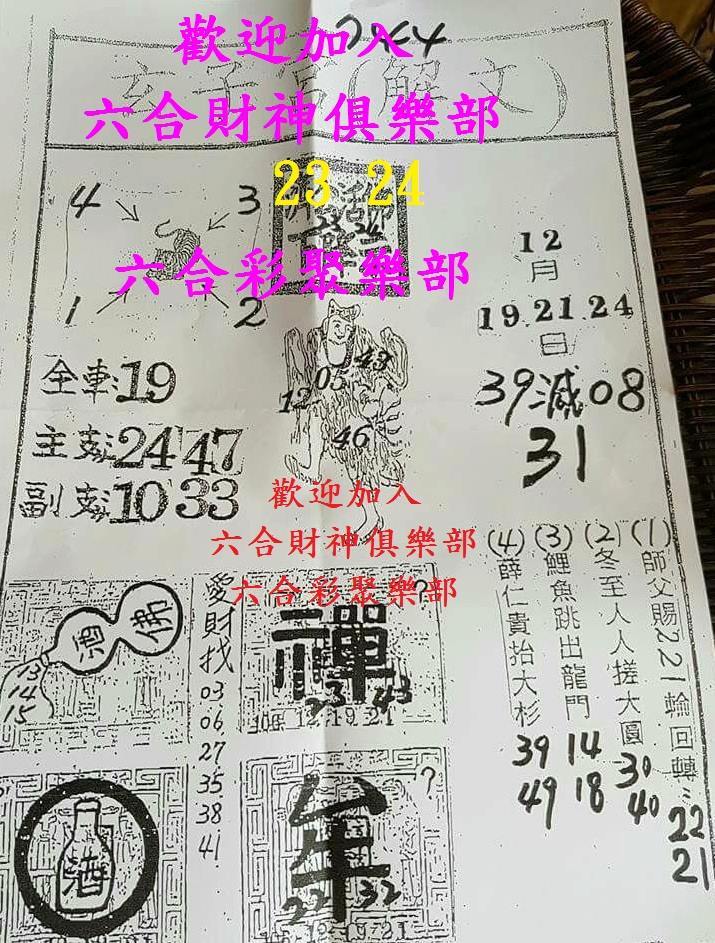 歡迎加入
玄子宮(解文)
六合財神俱樂部
23 24
六合彩聚樂部
4
3
1
2
12
月
19.21.24
日
39減08
31
全車:19
主支:24 47
副支:10 33
43
05
12
46
歡迎加入
六合財神俱樂部
六合彩聚樂部
(1)師父賜221輪回轉:22 21
(2)冬至人人搓大圓 30 40
(3)鯉魚跳出龍門 14 18
(4)薛仁貴抬大杉 39 49
佛
酒
13
14
15
愛財找 03 06 27 35 38 41
?
禪
23 43
106.12.19.21
酒
?
22 32
106.12.19.21